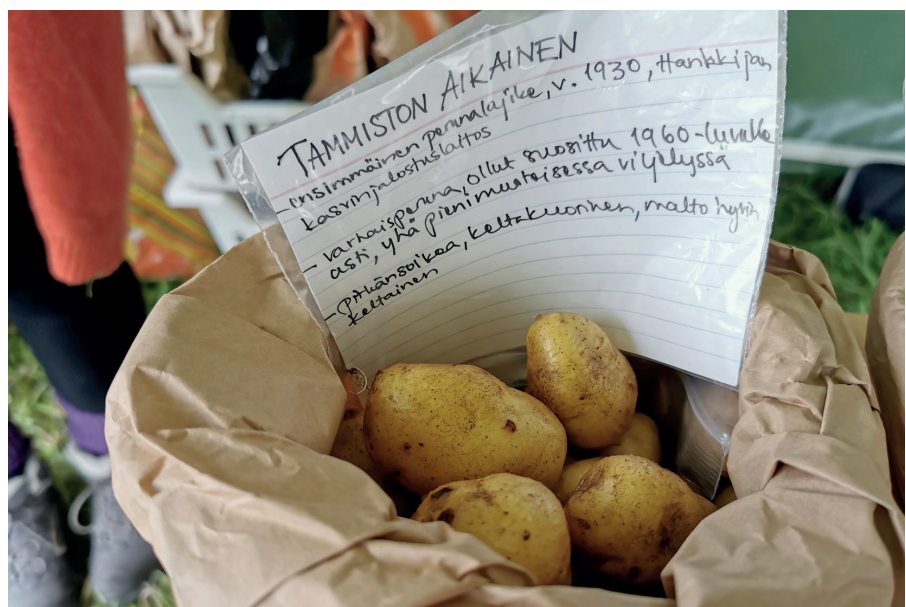 TAMMISTON AIKAINEN
- ensimmäinen perunalajike, v. 1930, Hankkijan
kasvinjalostuslaitos
- varhaisperuna, ollut suosittu 1960-luvulle
asti, yhä pienimuotoisessa viljelyssä
- pitkänsoikea, keltakuorinen, malto hyvin
keltainen